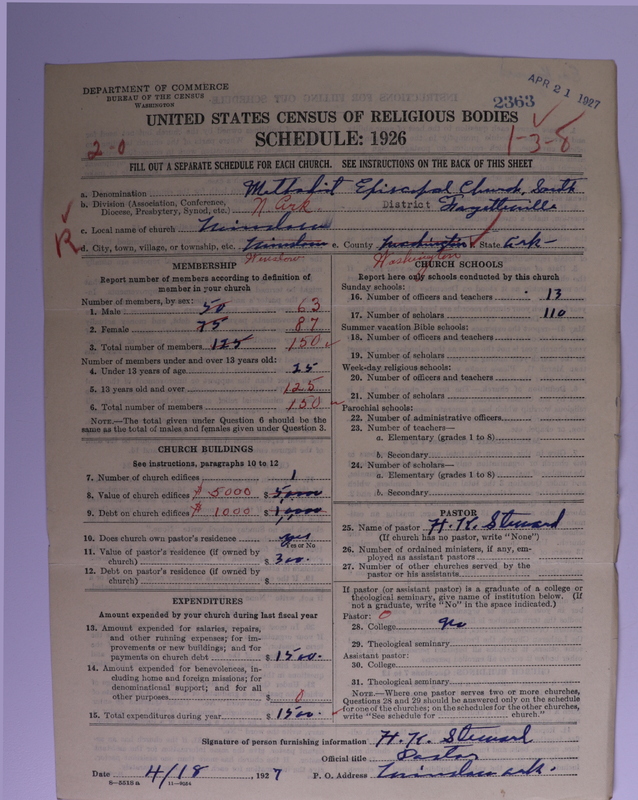 DEPARTMENT OF COMMERCE
BUREAU OF THE CENSUS
WASHINGTON
APR 21 1927
2363
UNITED STATES CENSUS OF RELIGIOUS BODIES
SCHEDULE: 1926
2-0
1-3-8
FILL OUT A SEPARATE SCHEDULE FOR EACH CHURCH. SEE INSTRUCTIONS ON THE BACK OF THIS SHEET
a. Denomination Methodist Episcopal Church, South
b. Division (Association, Conference, Diocese, Presbytery, Synod, etc.) N Ark. District Fayetteville
c. Local name of church Winslow
R d. City, town, village, or township, etc. Winslow e. County Washington State Ark-
Winslow Washington
MEMBERSHIP
Report number of members according to definition of
member in your church
Number of members, by sex:
1. Male 50 63
2. Female 75 87
3. Total number of members 125 150
Number of members under and over 13 years old:
4. Under 13 years of age 25
5. 13 years old and over 125
6. Total number of members 150
NOTE.—The total given under Question 6 should be
same as the total of males and females given under Question 3.
CHURCH BUILDINGS
See instructions, paragraphs 10 to 12
7. Number of church edifices 1
8. Value of church edifices $5000 $ 5,000
9. Debt on church edifices $1000 $ 1,000
10. Does church own pastor's residence yes
Yes or No
11. Value of pastor's residence (if owned by
church) $ 300.
12. Debt on pastor's residence (if owned by
church) $
EXPENDITURES
Amount expended by your church during last fiscal year
13. Amount expended for salaries, repairs,
and other running expenses; for im-
provements or new buildings; and for
payments on church debt $ 1500.
14. Amount expended for benevolences, in-
cluding home and foreign missions; for
denominational support; and for all
other purposes $ 0
15. Total expenditures during year $ 1500.
CHURCH SCHOOLS
Report here only schools conducted by this church
Sunday schools:
16. Number of officers and teachers 13
17. Number of scholars 110
Summer vacation Bible schools:
18. Number of officers and teachers
19. Number of scholars
Week-day religious schools:
20. Number of officers and teachers
21. Number of scholars
Parochial schools:
22. Number of administrative officers
23. Number of teachers—
a. Elementary (grades 1 to 8)
b. Secondary
24. Number of scholars—
a. Elementary (grades 1 to 8)
b. Secondary
PASTOR
25. Name of pastor H. K. Steward
(If church has no pastor, write "None")
26. Number of ordained ministers, if any, em-
ployed as assistant pastors
27. Number of other churches served by the
pastor or his assistants
If pastor (or assistant pastor) is a graduate of a college or
theological seminary, give name of institution below. (If
not a graduate, write "No" in the space indicated.)
Pastor: 0
28. College
29. Theological seminary
Assistant pastor:
30. College
31. Theological seminary
NOTE.—Where one pastor serves two or more churches,
Questions 28 and 29 should be answered only on the schedule
for one of the churches; on the schedules for the other churches,
write "See schedule for church."
Signature of person furnishing information H. K. Steward
Official title Pastor
Date 4/18, 1927 P. O. Address Winslow ark.
8-5519 a